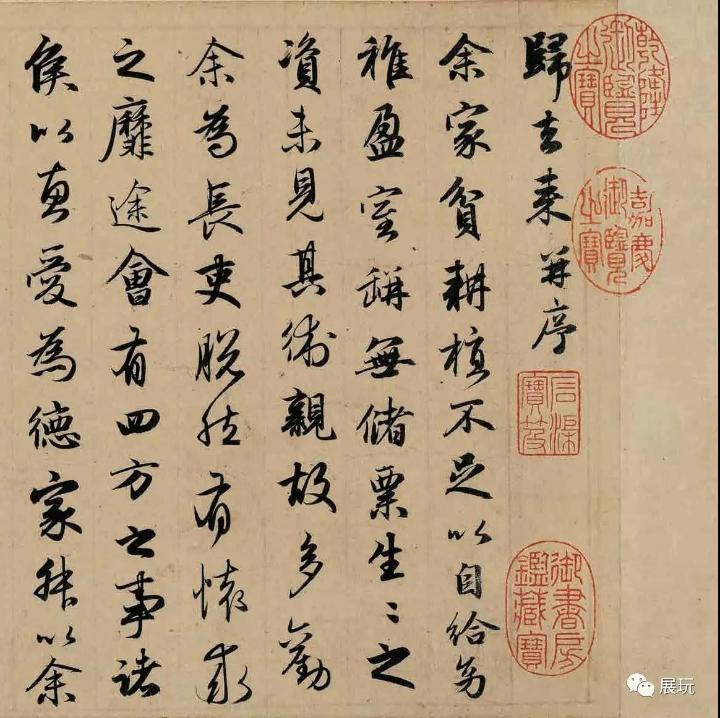 乾隆御覽之寶
嘉慶御覽之寶
歸去来并序
石渠寶笈
御書房鑑藏寶
余家貧耕植不足以自給幼
稚盈室缾無儲粟生〻之
資未見其術親故多勸
余為長吏脱然有懷求
之靡途會有四方之事諸
侯以惠愛為德家叔以余
展玩